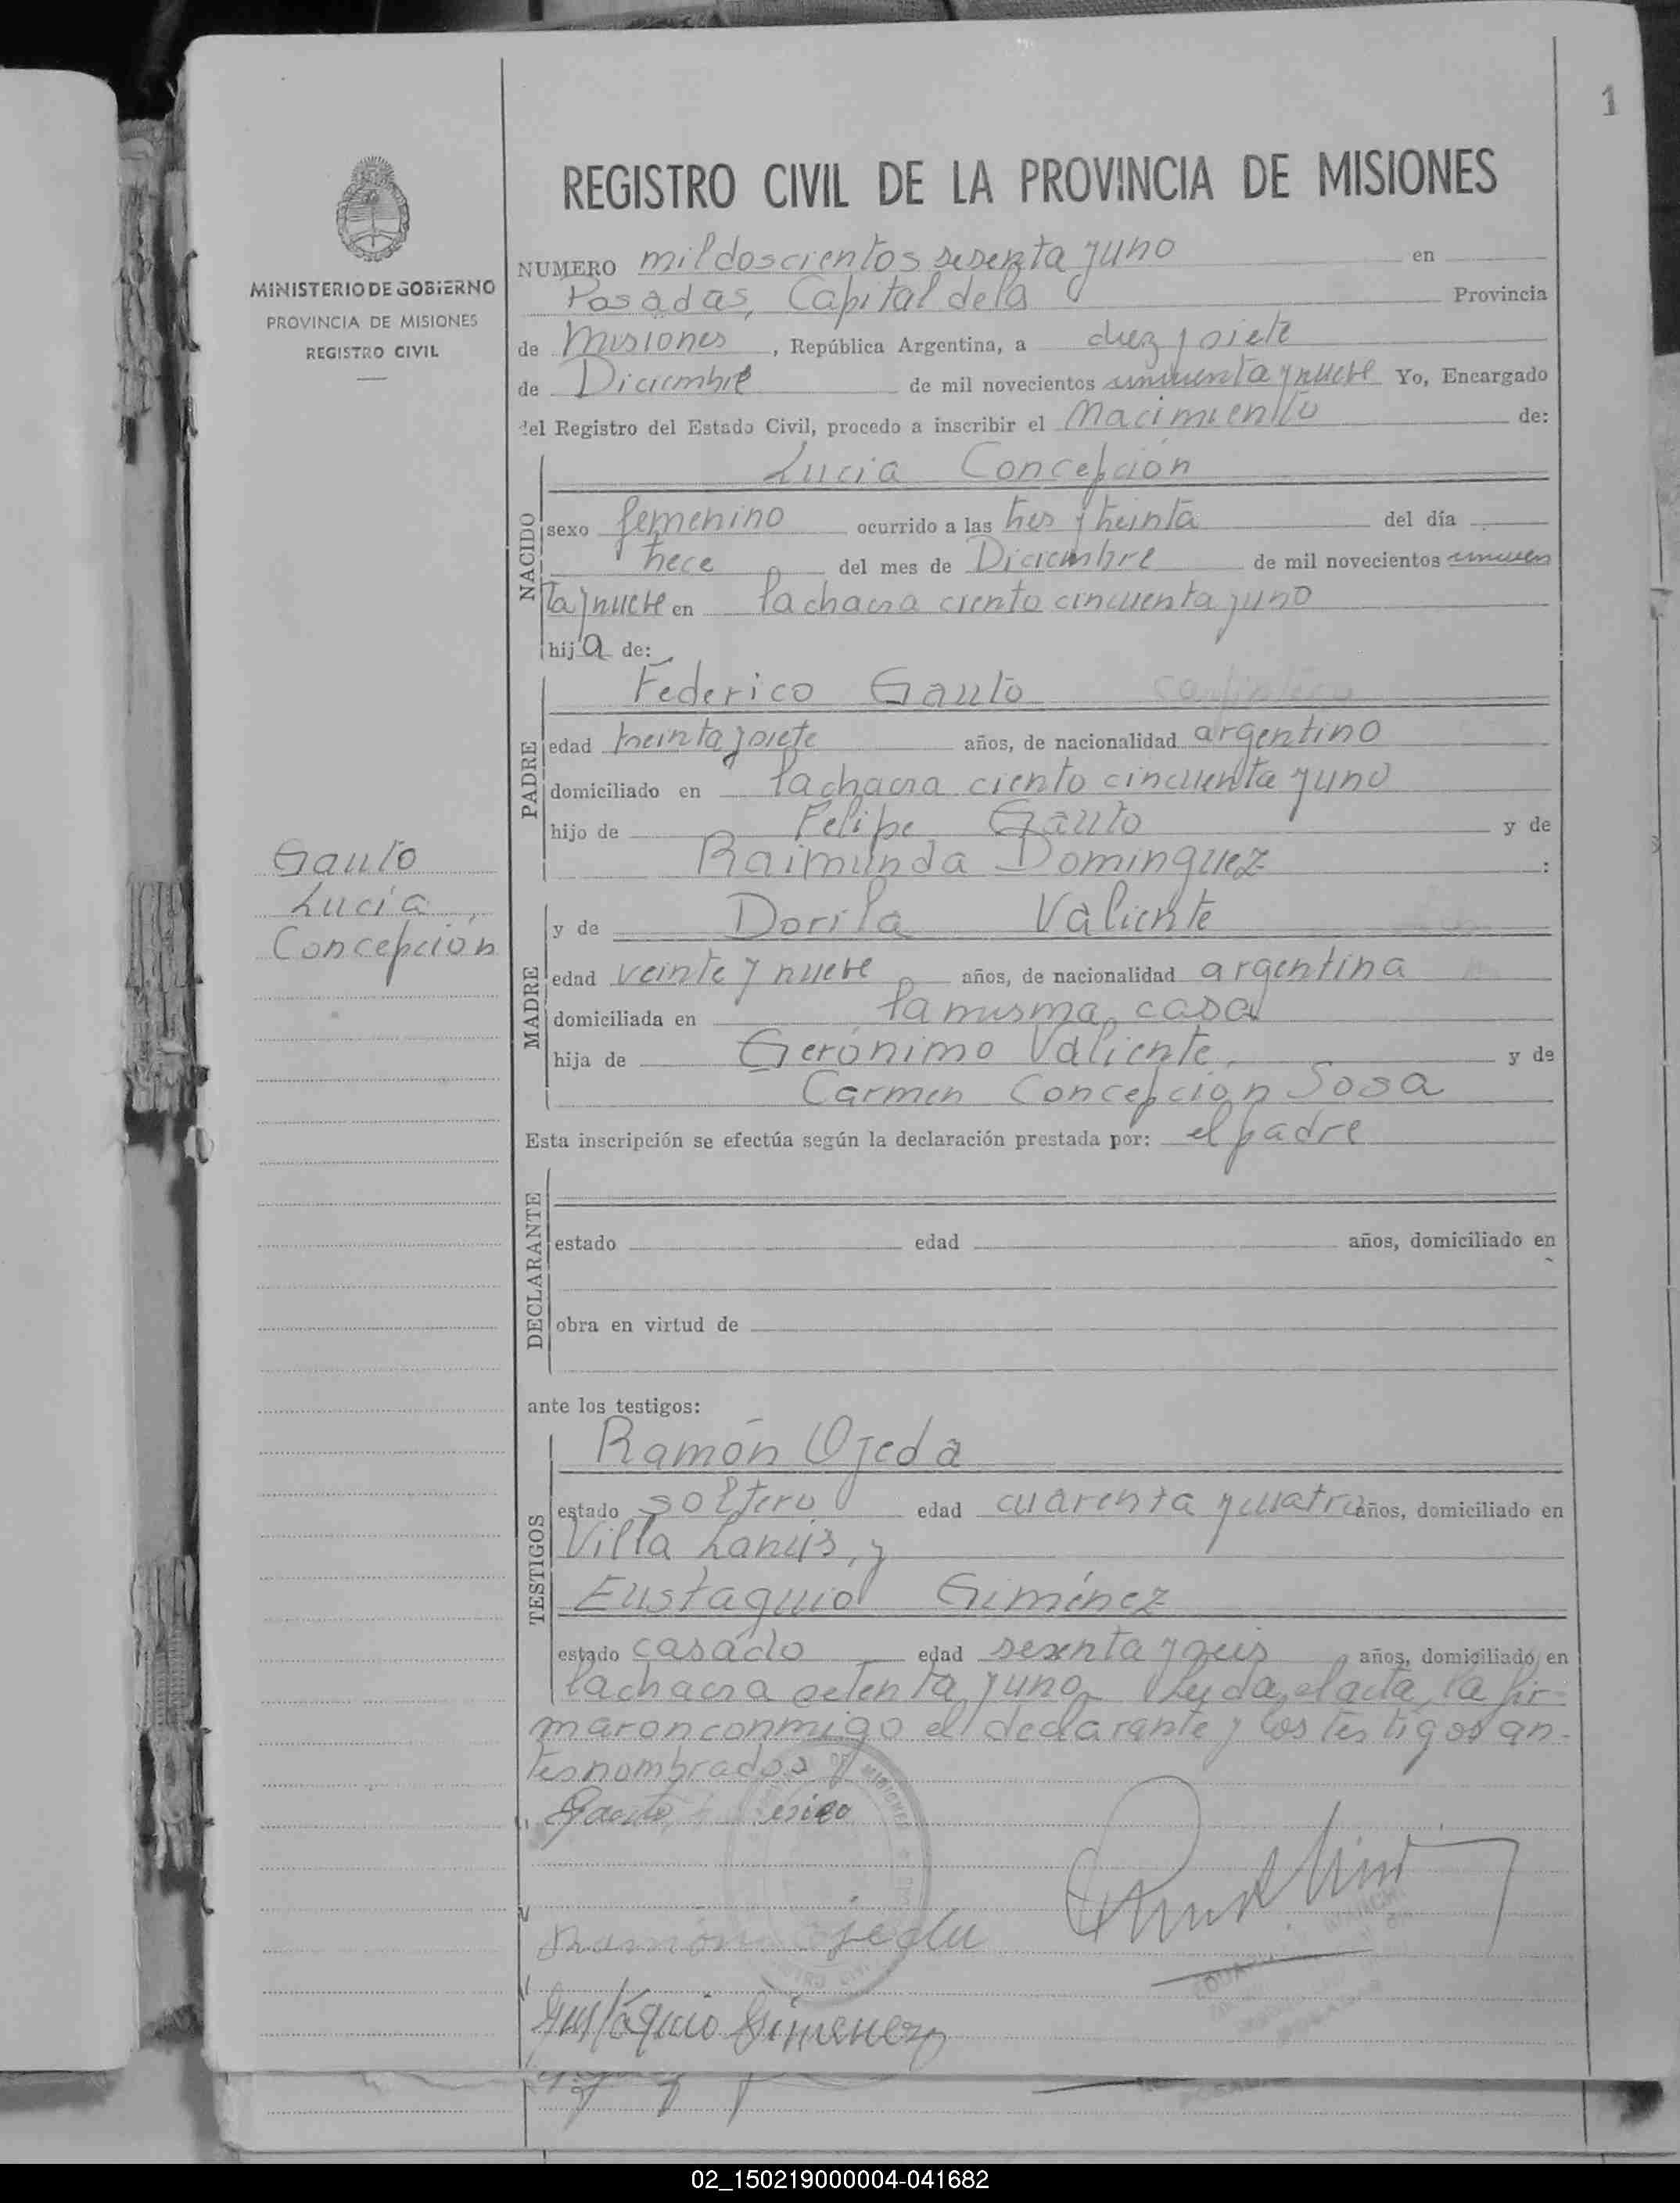 1
REGISTRO CIVIL DE LA PROVINCIA DE MISIONES
MINISTERIO DE GOBIERNO
PROVINCIA DE MISIONES
REGISTRO CIVIL
NUMERO mil doscientos sesenta y uno en
Posadas, Capital de la Provincia
de Misiones, República Argentina, a diez y siete
de Diciembre de mil novecientos cincuenta y nueve Yo, Encargado
del Registro del Estado Civil, procedo a inscribir el Nacimiento de:
NACIDO
Lucia Concepción
sexo femenino ocurrido a las tres y treinta del día
trece del mes de Diciembre de mil novecientos cincuen
ta y nueve en la chacra ciento cincuenta y uno
hija de:
PADRE
Federico Gauto
edad treinta y siete años, de nacionalidad argentino
domiciliado en la chacra ciento cincuenta y uno
hijo de Felipe Gauto y de
Raimunda Dominguez :
Gauto
Lucia
Concepción
MADRE
y de Dorila Valiente
edad veinte y nueve años, de nacionalidad argentina
domiciliada en la misma casa
hija de Gerónimo Valiente, y de
Carmen Concepción Sosa
Esta inscripción se efectúa según la declaración prestada por: el padre
DECLARANTE
estado edad años, domiciliado en
obra en virtud de
ante los testigos:
TESTIGOS
Ramón Ojeda
estado soltero edad cuarenta y cuatro años, domiciliado en
Villa Lanús, y
Eustaquio Giménez
estado casado edad sesenta y seis años, domiciliado en
la chacra setenta y uno Leyda el acta, la fir-
maron conmigo el declarante y los testigos an-
tes nombrados
Gauto
Ramón Ojeda
Eustáquio Gimenez
02_150219000004-041682